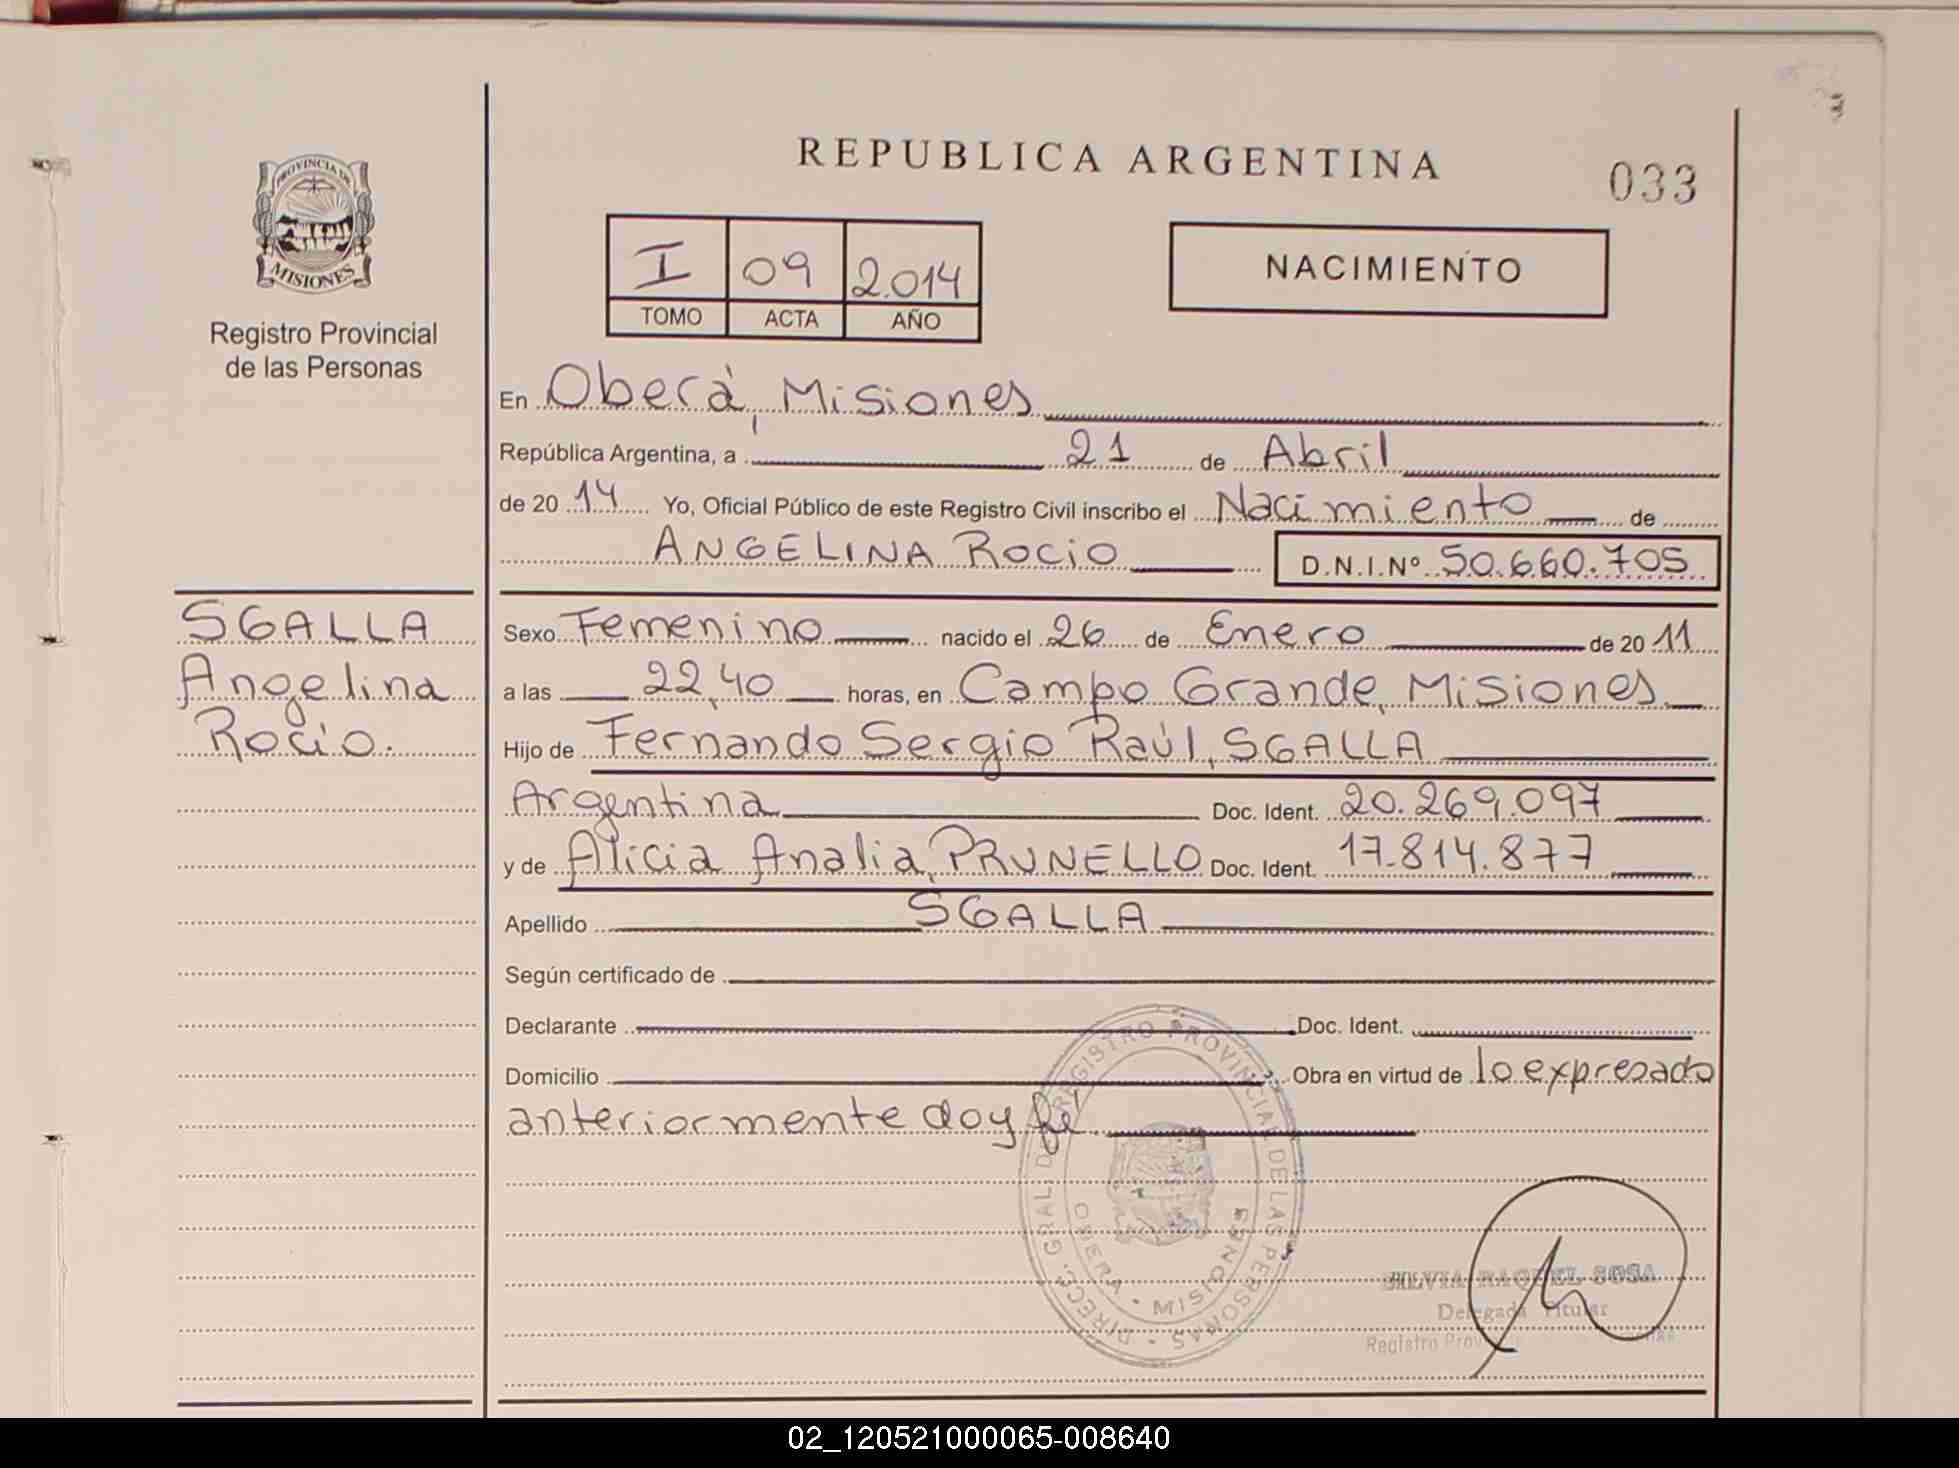 PROVINCIA DE
MISIONES
Registro Provincial
de las Personas
SGALLA
Angelina
Rocío.
REPUBLICA ARGENTINA
033
I 09 2.014
TOMO ACTA AÑO
NACIMIENTO
En Oberá, Misiones
República Argentina, a 21 de Abril
de 20 14 Yo, Oficial Público de este Registro Civil inscribo el Nacimiento de
ANGELINA ROCIO D.N.I.Nº 50.660.705
Sexo Femenino nacido el 26 de Enero de 20 11
a las 22,40 horas, en Campo Grande, Misiones
Hijo de Fernando Sergio Raúl, SGALLA
Argentina Doc. Ident. 20.269.097
y de Alicia Analia, PRUNELLO Doc. Ident. 17.814.877
Apellido SGALLA
Según certificado de
Declarante Doc. Ident.
Domicilio Obra en virtud de lo expresado
anteriormente doy fé
DIRECC. GRAL. DE REGISTRO PROVINCIAL DE LAS PERSONAS
OBERA - MISIONES
SILVIA RAQUEL SOSA
Delegada Titular
Registro
02_120521000065-008640